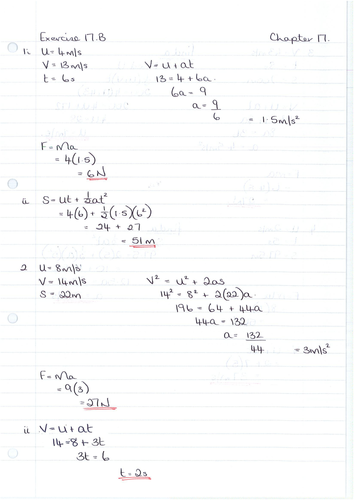 Exercise 17.B Chapter 17.
1i. U = 4m/s
V = 13m/s V = u + at
t = 6s 13 = 4 + 6a
6a = 9
a = 9/6 = 1.5m/s²
F = Ma
= 4(1.5)
= 6N
ii. S = Ut + ½at²
= 4(6) + ½(1.5)(6²)
= 24 + 27
= 51m
2 U = 8m/s
V = 14m/s V² = U² + 2as
S = 22m 14² = 8² + 2(22)a
196 = 64 + 44a
44a = 132
a = 132/44 = 3m/s²
F = Ma
= 9(3)
= 27N
ii V = U + at
14 = 8 + 3t
3t = 6
t = 2s